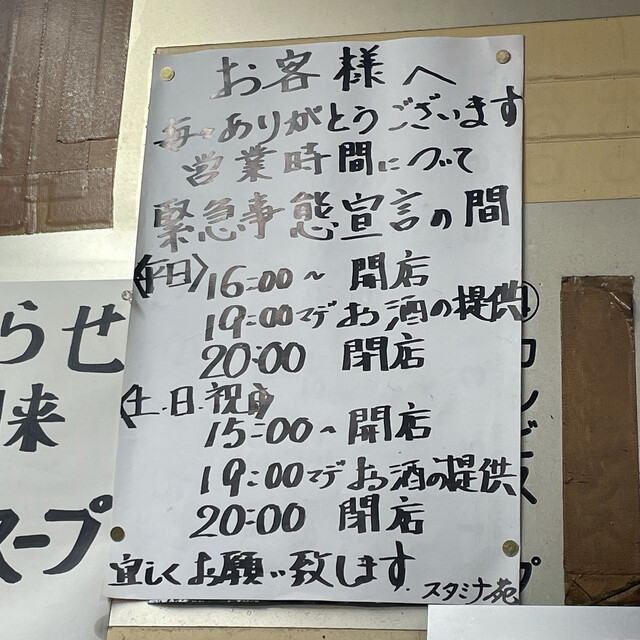 お客様へ
毎々ありがとうございます
営業時間について
緊急事態宣言の間
〈平日〉16:00~ 開店
19:00マデお酒の提供
20:00 閉店
〈土.日.祝日〉
15:00~開店
19:00マデお酒の提供
20:00 閉店
宜しくお願い致します.
スタミナ苑
らせ
来
スープ